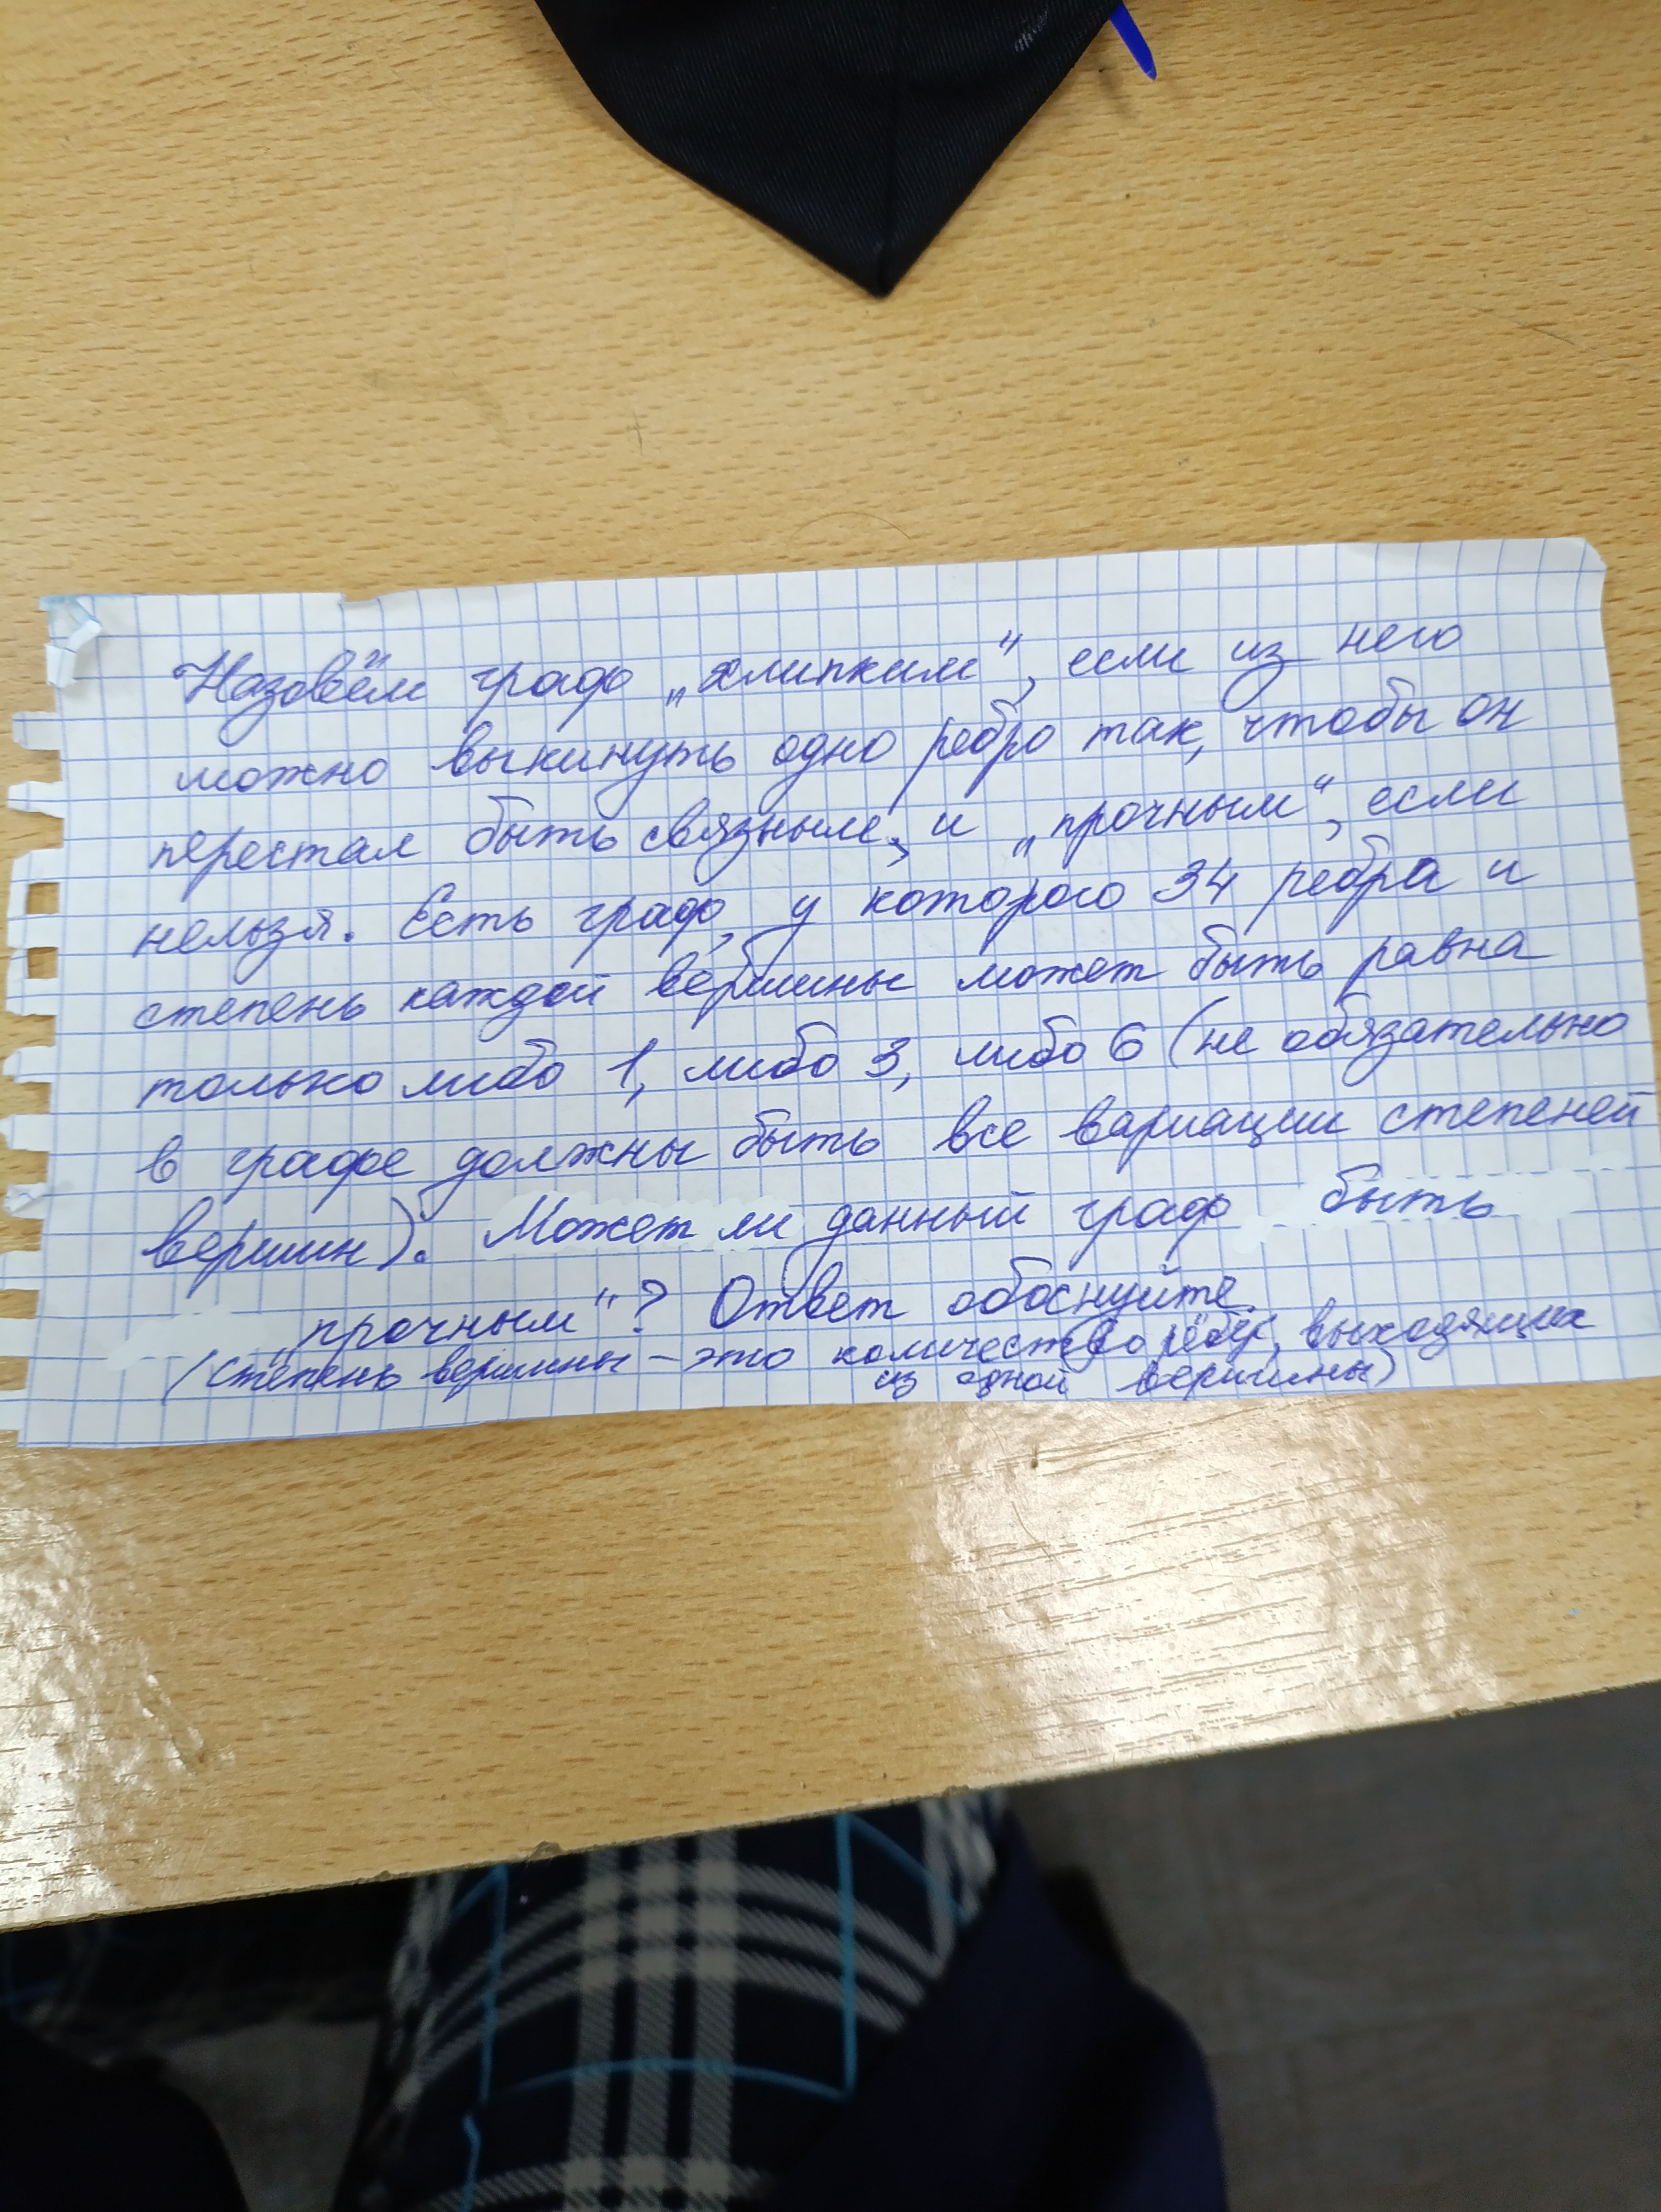 Назовём граф „хлипким“, если из него
можно выкинуть одно ребро так, чтобы он
перестал быть связным, и „прочным“, если
нельзя. Есть граф, у которого 34 ребра и
степень каждой вершины может быть равна
только либо 1, либо 3, либо 6 (не обязательно
в графе должны быть все вариации степеней
вершин). Может ли данный граф быть
„прочным“? Ответ обоснуйте.
(степень вершины – это количество рёбер, выходящих
из одной вершины)